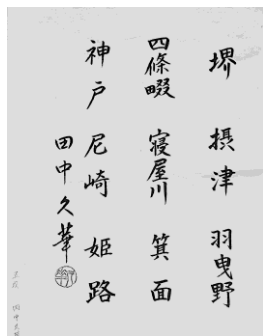 堺 摂津 羽曳野
四條畷 寝屋川 箕面
神戸 尼崎 姫路
田中久華